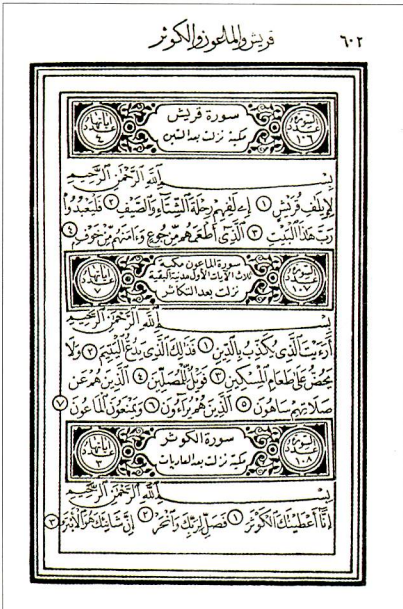 ٦٠٢
قريش والماعون والكوثر
السورة عدد ١٠٦
سورة قريش
مكية نزلت بعد التين
آياتها عدد ٤
بِسْمِ ٱللَّهِ ٱلرَّحْمَٰنِ ٱلرَّحِيمِ
لِإِيلَٰفِ قُرَيْشٍ ١ إِۦلَٰفِهِمْ رِحْلَةَ ٱلشِّتَآءِ وَٱلصَّيْفِ ٢ فَلْيَعْبُدُوا۟
رَبَّ هَٰذَا ٱلْبَيْتِ ٣ ٱلَّذِىٓ أَطْعَمَهُم مِّن جُوعٍ وَءَامَنَهُم مِّنْ خَوْفٍۭ ٤
السورة عدد ١٠٧
سورة الماعون مكية
ثلاث الآيات الأول مدنية البقية
نزلت بعد التكاثر
آياتها عدد ٧
بِسْمِ ٱللَّهِ ٱلرَّحْمَٰنِ ٱلرَّحِيمِ
أَرَءَيْتَ ٱلَّذِى يُكَذِّبُ بِٱلدِّينِ ١ فَذَٰلِكَ ٱلَّذِى يَدُعُّ ٱلْيَتِيمَ ٢ وَلَا
يَحُضُّ عَلَىٰ طَعَامِ ٱلْمِسْكِينِ ٣ فَوَيْلٌ لِّلْمُصَلِّينَ ٤ ٱلَّذِينَ هُمْ عَن
صَلَاتِهِمْ سَاهُونَ ٥ ٱلَّذِينَ هُمْ يُرَآءُونَ ٦ وَيَمْنَعُونَ ٱلْمَاعُونَ ٧
السورة عدد ١٠٨
سورة الكوثر
مكية نزلت بعد العاديات
آياتها عدد ٣
بِسْمِ ٱللَّهِ ٱلرَّحْمَٰنِ ٱلرَّحِيمِ
إِنَّآ أَعْطَيْنَٰكَ ٱلْكَوْثَرَ ١ فَصَلِّ لِرَبِّكَ وَٱنْحَرْ ٢ إِنَّ شَانِئَكَ هُوَ ٱلْأَبْتَرُ ٣